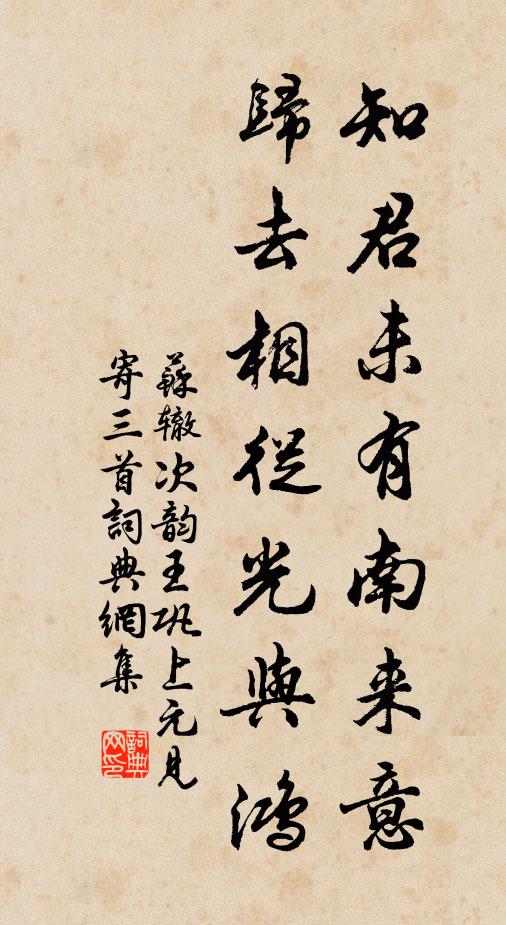 知君未有南来意
歸去相從光與鴻
蘇辙次韵王巩上元見
寄三首詞典網集
詞典
网印